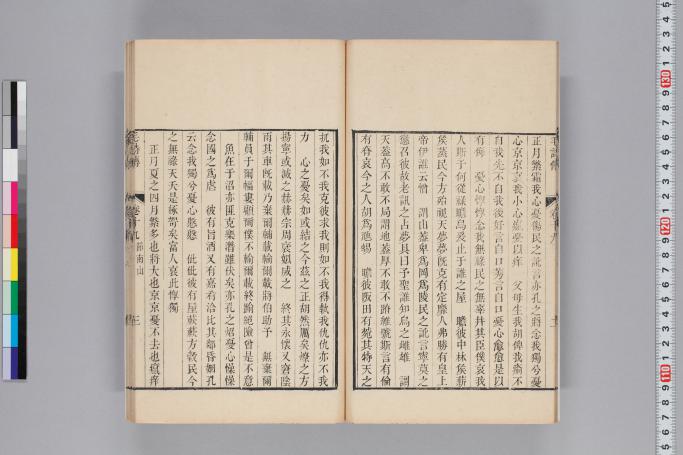 正月繁霜我心憂傷民之訛言亦孔之將念我獨兮憂
心京京哀我小心癙憂以痒　父母生我胡俾我瘉不
自我先不自我後好言自口莠言自口憂心愈愈是以
有侮　憂心惸惸念我無祿民之無辜并其臣僕哀我
人斯于何從祿瞻烏爰止于誰之屋　瞻彼中林侯薪
侯蒸民今方殆視天夢夢既克有定靡人弗勝有皇上
帝伊誰云憎　謂山蓋卑爲岡爲陵民之訛言寧莫之
懲召彼故老訊之占夢具曰予聖誰知烏之雌雄　謂
天蓋高不敢不局謂地蓋厚不敢不蹐維號斯言有倫
有脊哀今之人胡爲虺蜴　瞻彼阪田有菀其特天之
扤我如不我克彼求我則如不我得執我仇仇亦不我
力　心之憂矣如或結之今茲之正胡然厲矣燎之方
揚寧或滅之赫赫宗周褒姒烕之　終其永懷又窘陰
雨其車既載乃棄爾輔載輸爾載將伯助予　無棄爾
輔員于爾輻屢顧爾僕不輸爾載終踰絕險曾是不意
魚在于沼亦匪克樂潛雖伏矣亦孔之炤憂心慘慘
念國之爲虐　彼有旨酒又有嘉殽洽比其鄰昏姻孔
云念我獨兮憂心慇慇　佌佌彼有屋蓛蓛方穀民今
之無祿天夭是椓哿矣富人哀此惸獨
正月夏之四月繁多也將大也京京憂不去也癙痒
節南山